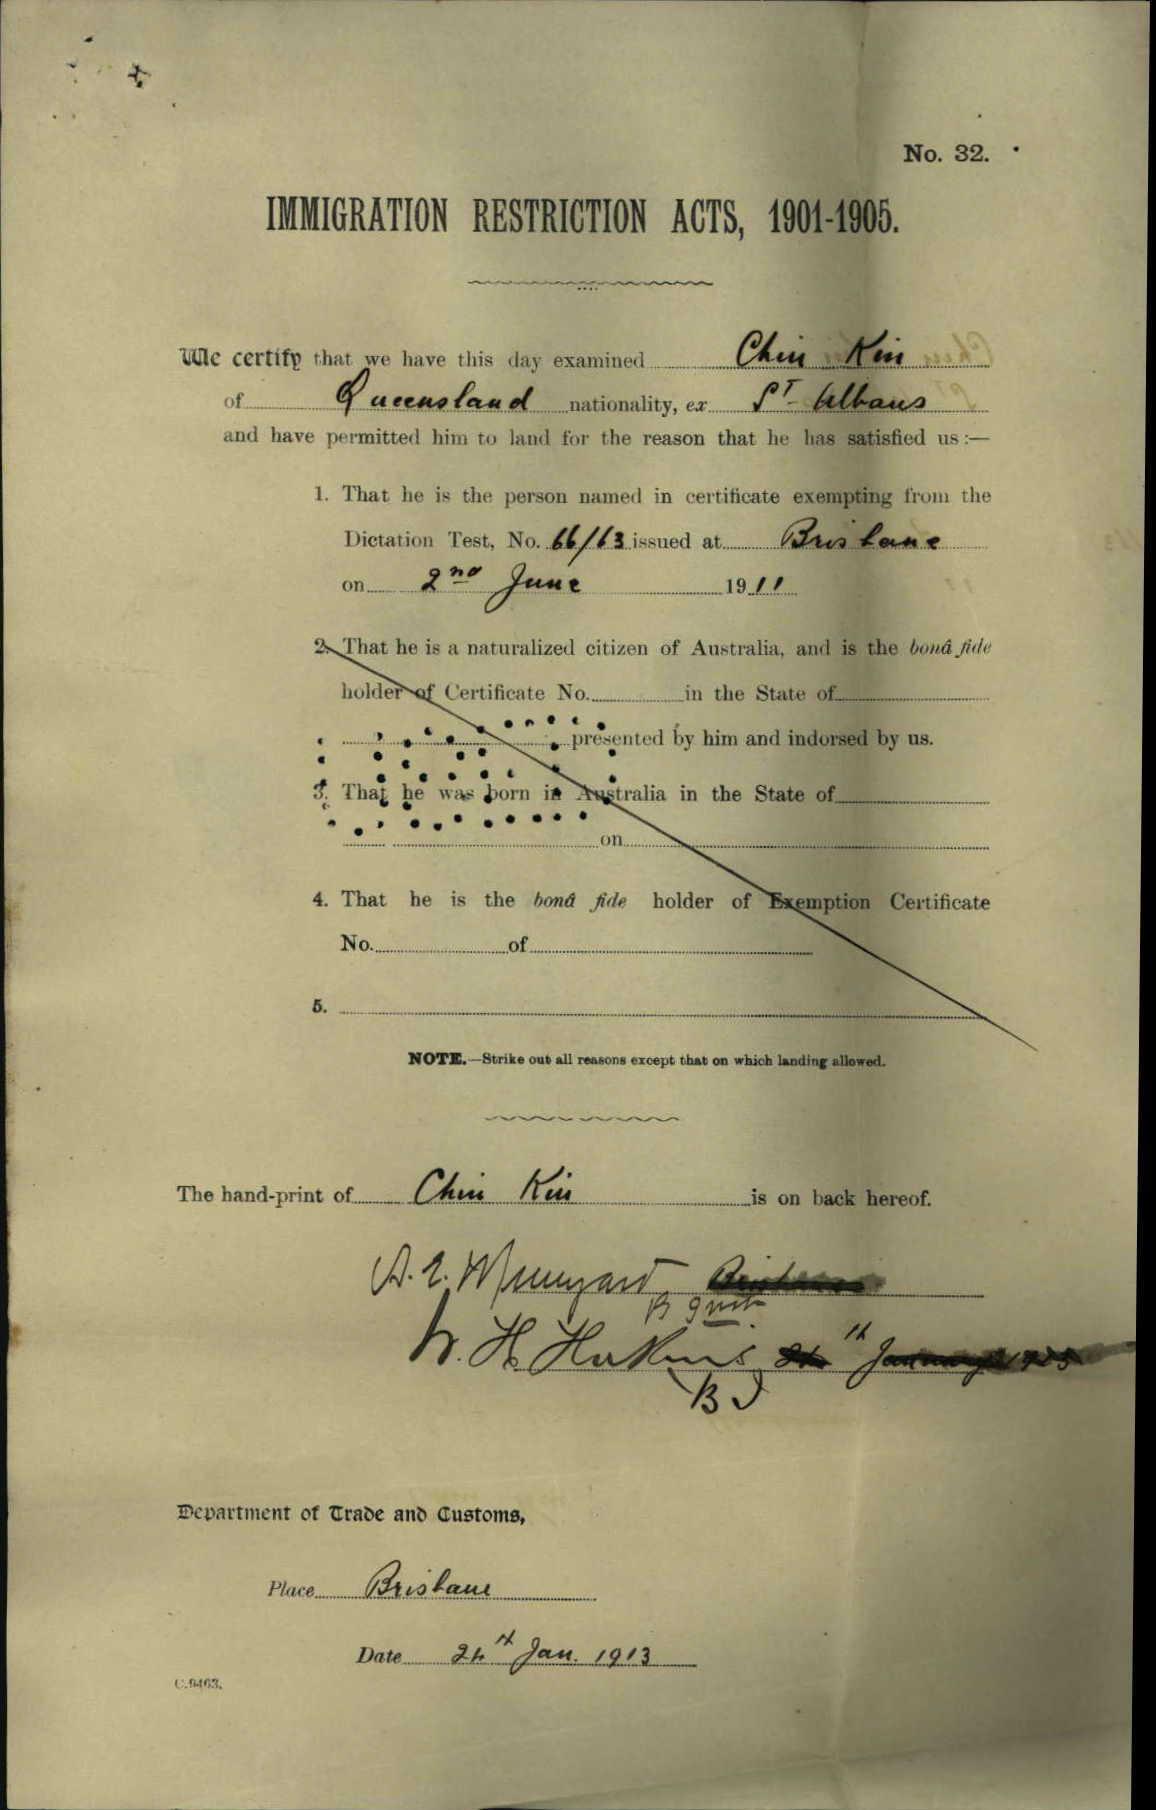 No. 32.
IMMIGRATION RESTRICTION ACTS, 1901-1905.
We certify that we have this day examined Chin Kin
of Queensland nationality, ex St Albans
and have permitted him to land for the reason that he has satisfied us :—
1. That he is the person named in certificate exempting from the
Dictation Test, No. 66/63 issued at Brisbane
on 2nd June 1911
2. That he is a naturalized citizen of Australia, and is the bonâ fide
holder of Certificate No. in the State of
presented by him and indorsed by us.
3. That he was born in Australia in the State of
on
4. That he is the bonâ fide holder of Exemption Certificate
No. of
5.
NOTE.—Strike out all reasons except that on which landing allowed.
The hand-print of Chin Kin is on back hereof.
A. E.
W. H.
Department of Trade and Customs,
Place Brisbane
Date 24th Jan. 1913
C.9463.